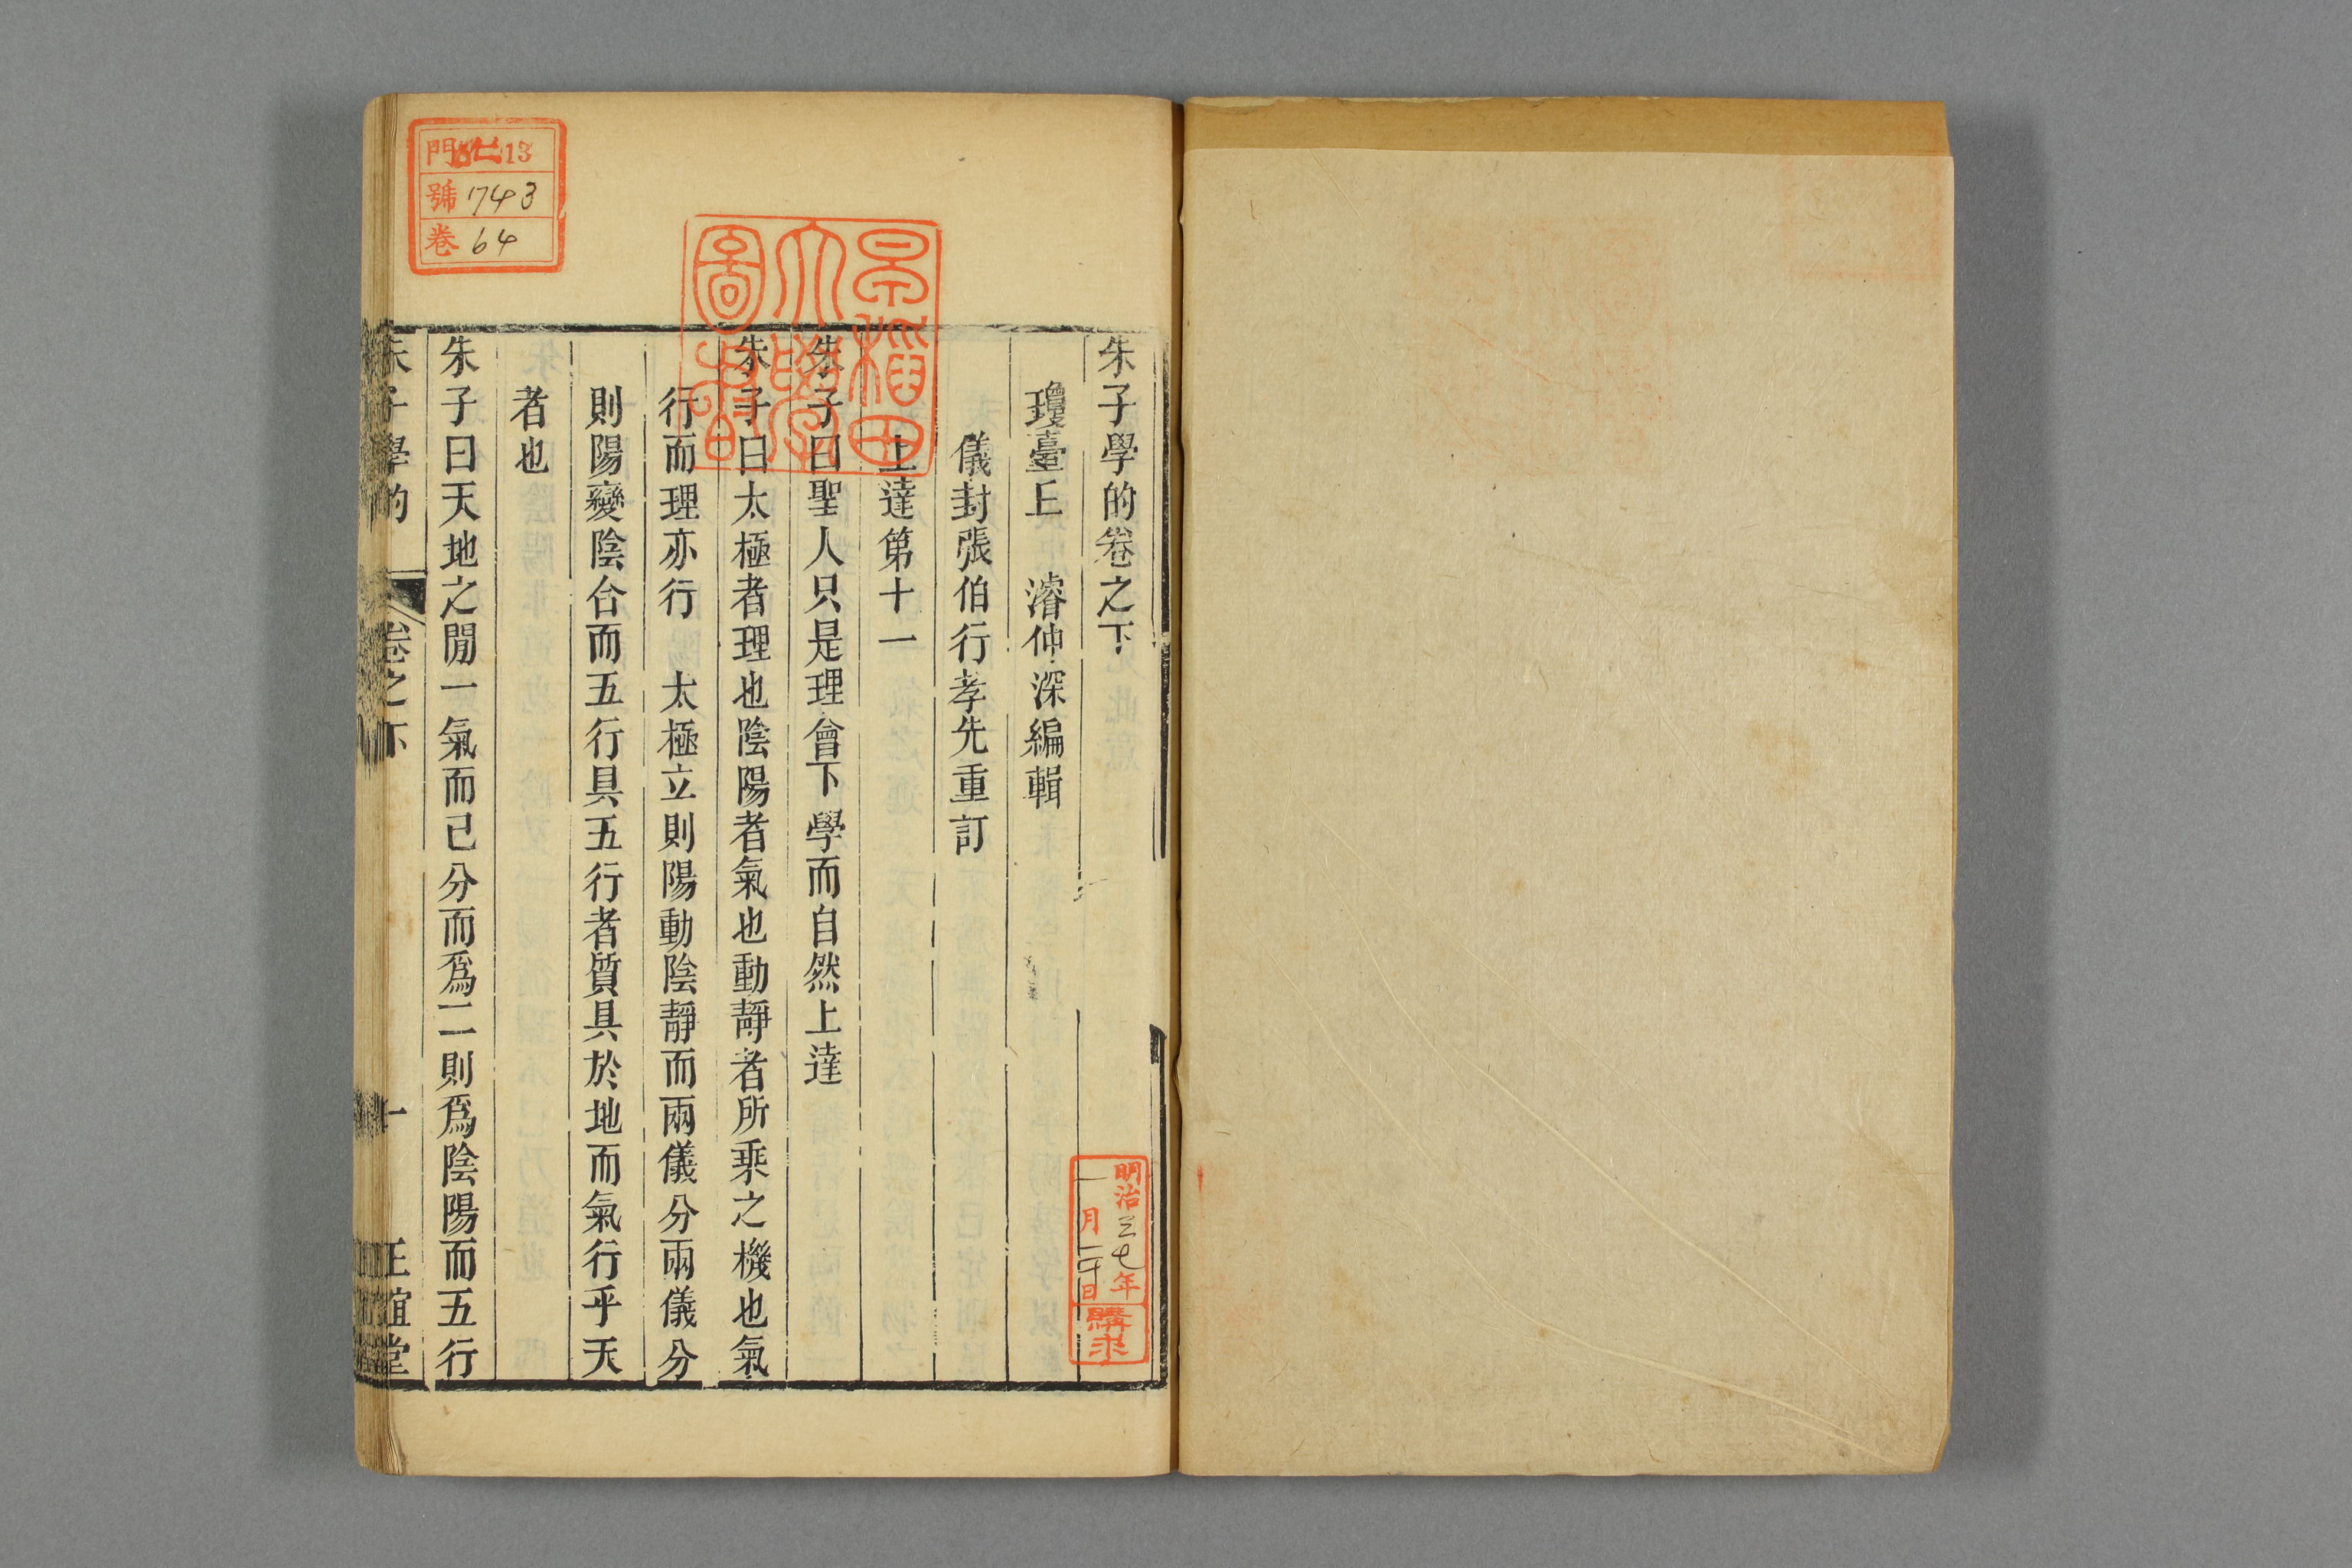 朱子學的卷之下
瓊臺丘　濬仲深編輯
儀封張伯行孝先重訂
上達第十一
朱子曰聖人只是理會下學而自然上達
朱子曰太極者理也陰陽者氣也動靜者所乘之機也氣
行而理亦行　太極立則陽動陰靜而兩儀分兩儀分
則陽變陰合而五行具五行者質具於地而氣行乎天
者也
朱子曰天地之閒一氣而已分而爲二則爲陰陽而五行
朱子學的　卷之下　一　正誼堂
早稻田
大學
圖書
門 13
號 1743
卷 64
明治三七年
月 日
購求